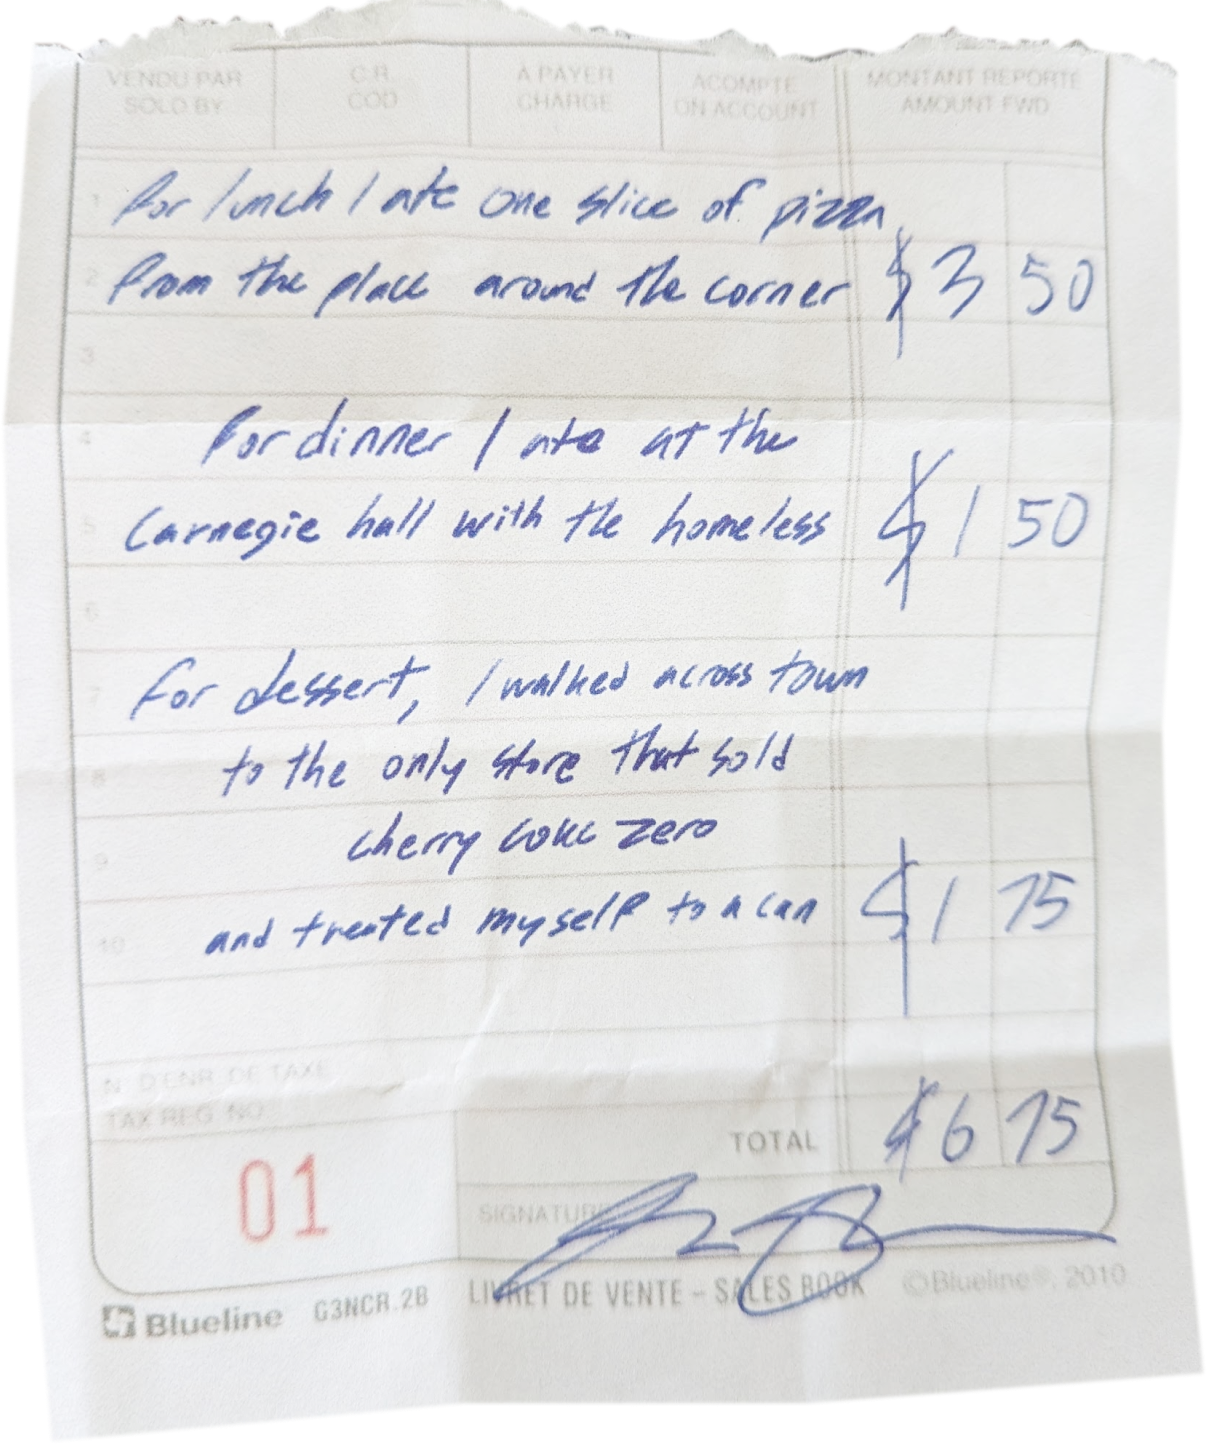 VENDU PAR
SOLD BY
C.R.
COD
À PAYER
CHARGE
ACOMPTE
ON ACCOUNT
MONTANT REPORTÉ
AMOUNT FWD
1 For lunch I ate one slice of pizza
2 from the place around the corner $3 50
3
4 For dinner I ate at the
5 Carnegie hall with the homeless $1 50
6
7 For dessert, I walked across town
8 to the only store that sold
9 cherry coke zero
10 and treated myself to a can $1 75
N° D'ENR. DE TAXE
TAX REG. NO.
TOTAL $6 75
01
SIGNATURE
Blueline G3NCR.2B LIVRET DE VENTE - SALES BOOK ©Blueline®, 2010